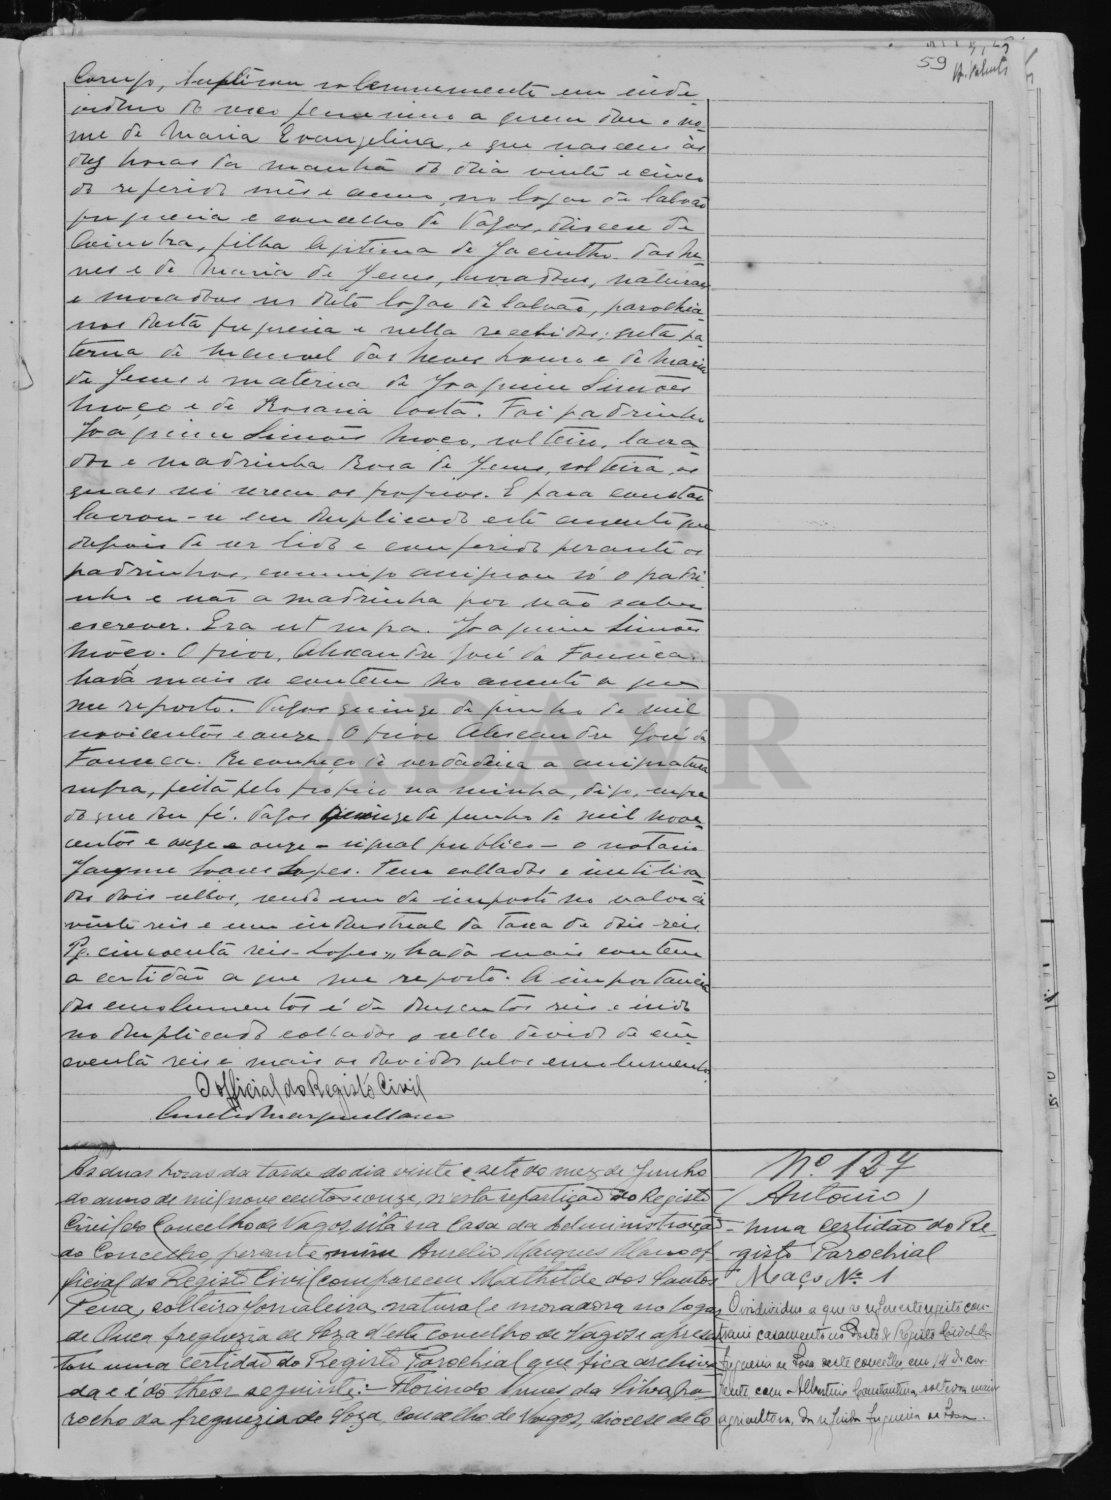 59
Corujo, baptisou solemnemente um indi-
viduo do sexo femenino a quem deu o no-
me de Maria Evangelina, e que nasceu ás
dez horas da manhã do dia vinte e cinco
do referido mês e anno, no logar de Calvão
freguezia e concelho de Vagos, diocese de
Coimbra, filha legitima de Jacintho das Ne-
ves e de Maria de Jesus, lavradores, naturaes
e moradores no dito logar de Calvão, parochia-
nos desta freguezia e nella recebidos; neta pa-
terna de Manoel das Neves Louro e de Maria
de Jesus e materna de Joaquim Simões
Moço e de Rosaria Costa. Foi padrinho
Joaquim Simões Moço, solteiro, lavra-
dor e madrinha Rosa de Jesus, solteira, os
quaes sei serem os proprios. E para constar
lavrou-se em duplicado este assento que
depois de ser lido e conferido perante os
padrinhos, commigo assignou só o padri-
nho e não a madrinha por não saber
escrever. Era ut supra. Joaquim Simões
Môço. O prior, Alexandre José da Fonseca.
Nada mais se contem no assento a que
me reporto. Vagos quinze de junho de mil
novecentos e onze. O prior Alexandre José da
Fonseca. Reconheço de verdadeira a assignatura
supra, feita pelo proprio na minha, digo, supra
do que dou fé. Vagos quinze de junho de mil nove-
centos e onze e onze – signal publico – o notario
Jayme Lopes. Tem collados e inutilisa-
dos dois sellos, sendo um de imposto no valor de
vinte reis e um industrial da taxa de dois reis
Pg. cincoenta reis – Lopes „ Nada mais contem
a certidão a que me reporto. A importancia
dos emolumentos é de duzentos reis e
no duplicado collados o sello devido de cin-
coenta reis e mais os devidos pelos emolumentos.
O official do Registo Civil
As duas horas da tarde do dia vinte e sete do mez de Junho
do anno de mil nove centos e onze, n'esta repartição do Registo
Civil do Concelho de Vagos, sita na Casa da Administração
do Concelho, perante mim Aurelio Marques Mano of-
ficial do Registo Civil compareceu Mathilde dos Santos
Pena, solteira jornaleira, natural e moradora no logar
de Ouca freguezia de Soza d'este concelho de Vagos e apresen
tou uma certidão do Registo Parochial que fica archiva
da e é do theor seguinte: – Florindo Nunes da Silva, pa-
rocho da freguezia de Soza, concelho de Vagos, diocese de Co
Nº 127
(Antonio)
– uma certidão do Re-
gisto Parochial
Maço Nº 1
O individuo a que se refere este registo con-
traiu casamento no Posto do Registo Civil da
freguesia de Soza deste concelho em 14 do cor-
rente com Albertina Constantina, solteira, maior
agricultora, da referida freguesia de Soza.
ADAVR